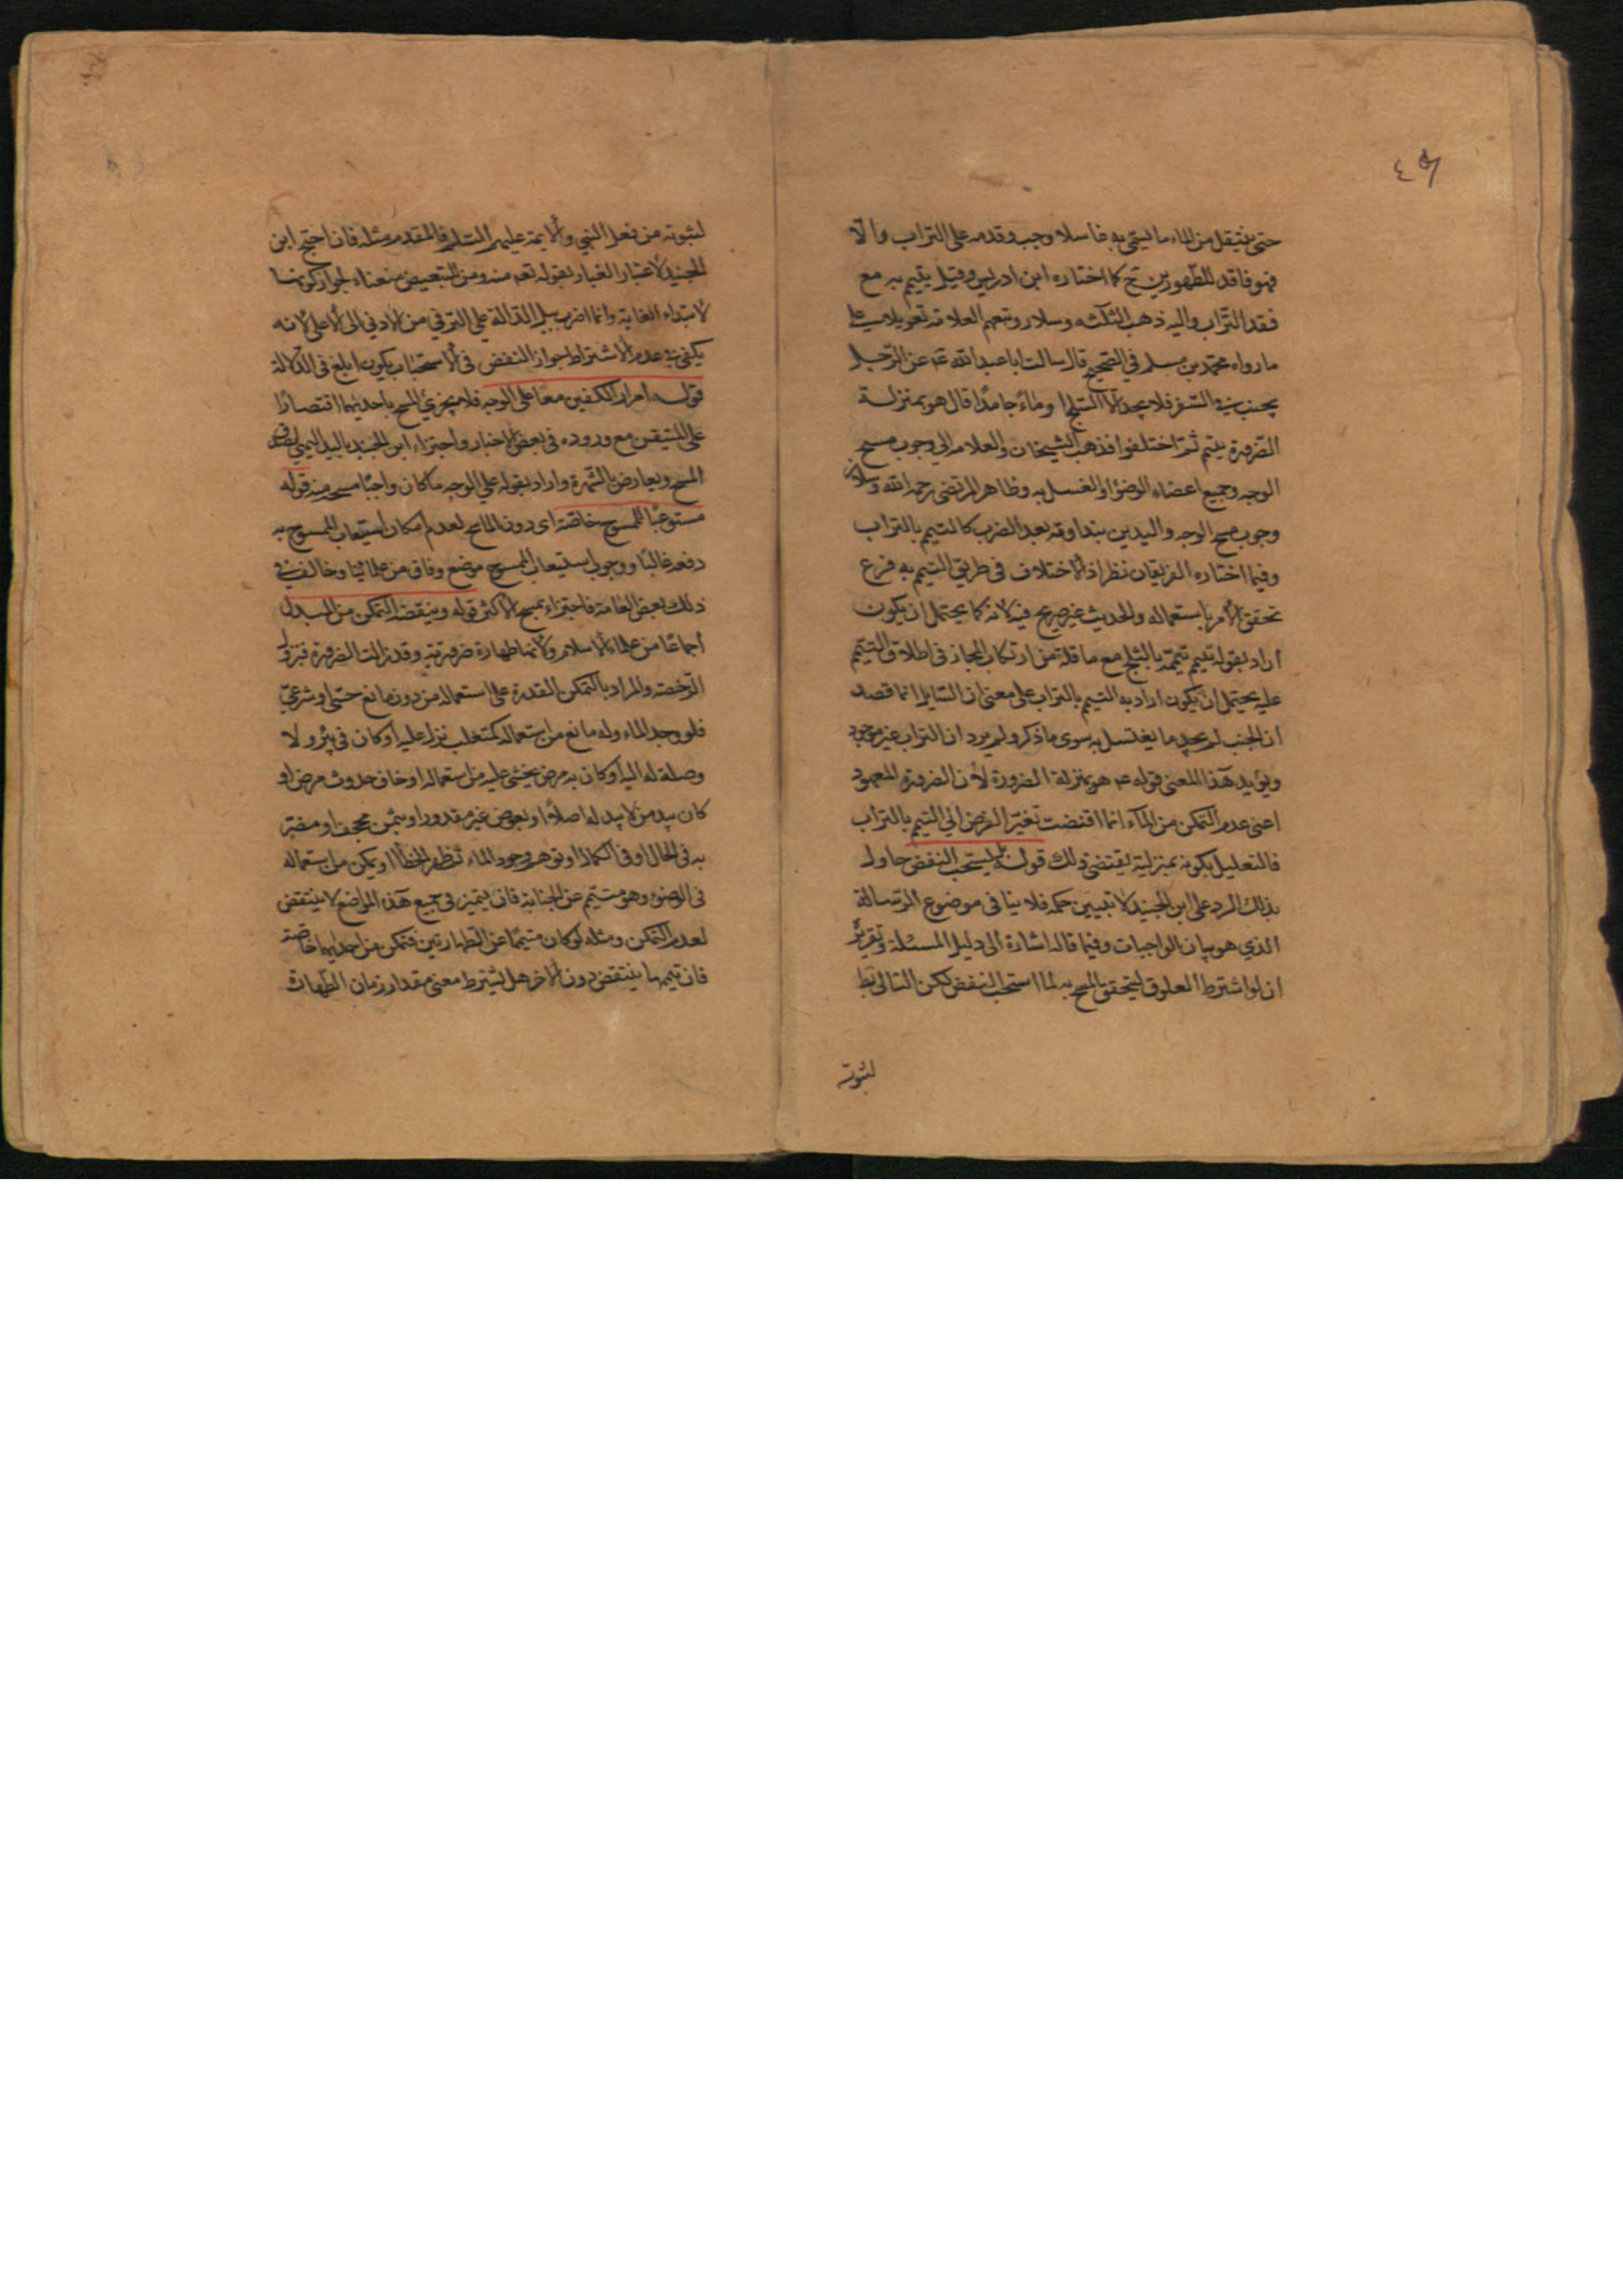 ٤٥
حتى ينتقل من الماء ما يسمى به غاسلا وجب وقدمه على التراب والا
فهو فاقد للطهورين ح كما اختاره ابن ادريس وقيل يتيمم به مع
فقد التراب واليه ذهب الثلثه وسلار وتبعهم العلامه تعويلا على
ما رواه محمد بن مسلم في الصحيح قال سالت ابا عبد الله عه عن الرجل
يجنب في السفر فلا يجد الا الثلج او ماء جامدا قال هو بمنزلة
الضرورة يتيمم ثم اختلفوا فذهب الشيخان والعلامه الى وجوب مسح
الوجه وجميع اعضاء الوضوء او الغسل به وظاهر المرتضى رحمه الله وسلار
وجوب مسح الوجه واليدين بنداوته بعد الضرب كالتيمم بالتراب
وفيما اختاره الفريقان نظر اذ الاختلاف في طريق التيمم به فرع
تحقق الامر باستعماله والحديث غير صريح فيه لانه كما يحتمل ان يكون
اراد بقوله تيمم تيممه بالثلج مع ما فيه من ارتكاب المجاز في اطلاق التيمم
عليه يحتمل ان يكون اراد به التيمم بالتراب على معنى ان السايل انما قصد
ان الجنب لم يجد ما يغتسل به سوى ما ذكر ولم يرد ان التراب غير موجود
ويؤيد هذا المعنى قوله عه هو بمنزلة الضرورة لان الضرورة المعهود
اعنى عدم التمكن من الماء انما اقتضت تغير الفرض الى التيمم بالتراب
فالتعليل بكونه بمنزلته يقتضى ذلك قوله بل يستحب النفض حاول
بذلك الرد على ابن الجنيد لا تبيين حكمه فلا ينافى موضوع الرسالة
الذي هو بيان الواجبات وفيما قاله اشارة الى دليل المسئلة وتقريره
ان لو اشترط العلوق ليتحقق المسح به لما استحب النفض لكن التالى بط
لثبوته
لثبوته من فعل النبي والايمة عليهم السلم فالمقدم مثله فان احتج ابن
الجنيد لاعتبار الغبار بقوله تعه منه ومن للتبعيض منعناه لجواز كونها
لابتداء الغاية وانما اضرب ببل الدالة على الترقي من الادنى الى الاعلى لانه
يكفى في عدم الاشتراط جواز النفض ففى الاستحباب يكون ابلغ فى الدلالة
قوله امرار الكفين معا على الوجه فلا يجزئ المسح باحديهما اقتصارا
على المتيقن مع وروده فى بعض الاخبار واجتزاء ابن الجنيد باليد اليمنى لصدق
المسح ويعارض بالشهرة واراد بقوله على الوجه ما كان واجبا مسحه منه قوله
مستوعبا للممسوح خاصة اى دون الماسح لعدم امكان استيعاب الممسوح به
دفعه غالبا ووجوب استيعاب الممسوح موضع وفاق من علمائنا وخالف في
ذلك بعض العامة فاجتزاء بمسح الاكثر قوله وينقضه التمكن من المبدل
اجماعا من علماء الاسلام ولانها طهارة ضرورية وقد زالت الضرورة فتزول
الرخصة والمراد بالتمكن القدرة على استعماله من دون مانع حسى او شرعي
فلو وجد الماء وله مانع من استعماله كمتغلب نزل عليه او كان فى بئر ولا
وصلة له اليه او كان به مرض يخشى عليه من استعماله او خاف حدوث مرض او
كان بيد من لا يبذله اصلا او بعوض غير مقدور او بثمن مجحف او مضر
به فى الحال او فى المآل او توهم وجود الماء ثم ظهر الخطأ او يمكن من استعماله
فى الوضوء وهو متيمم عن الجنابة فان تيممه فى جميع هذه المواضع لا ينتقض
لعدم التمكن ومثله لو كان متيمما عن الطهارتين فتمكن من احديهما خاصة
فان تيممها ينتقض دون الاخر هل يشترط معنى مقدار زمان الطهارة